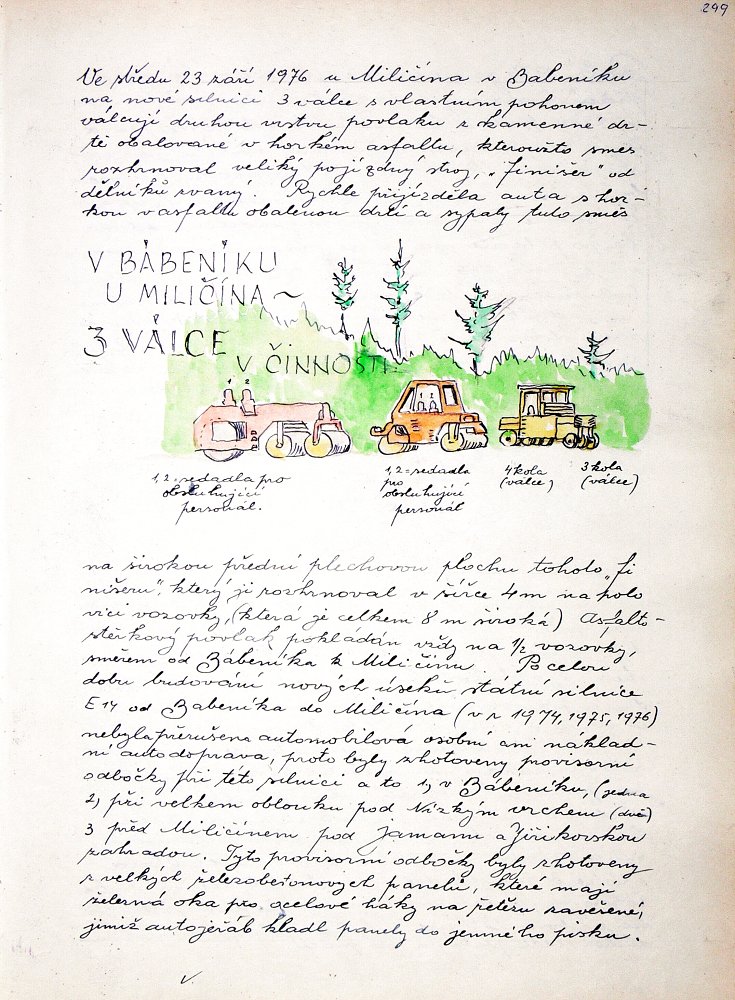 299
Ve středu 23 září 1976 u Miličína v Babeníku
na nové silnici 3 válce s vlastním pohonem
válcují druhou vrstvu povlaku z kamenné dr-
tě obalované v horkém asfaltu, kteroužto směs
rozhrnoval veliký pojízdný stroj, "finišer" od
dělníků zvaný. Rychle přijížděla auta s hor-
kou v asfaltu obalenou drtí a sypaly tuto směs
V BÁBENÍKU
U MILIČÍNA ~
3 VÁLCE
V ČINNOSTI
1 2
1 2
1, 2 = sedadla pro
obsluhující
personál.
1, 2 = sedadla
pro
obsluhující
personál
4 kola
(válce)
3 kola
(válce)
na širokou přední plechovou plochu tohoto „fi
nišeru", který ji rozhrnoval v šířce 4 m na polo
vici vozovky, (která je celkem 8 m široká) Asfalto-
štěrkový povlak pokládán vždy na 1/2 vozovky,
směrem od Bábeníka k Miličínu. Po celou
dobu budování nových úseků státní silnice
E 14 od Babeníka do Miličína (v r 1974, 1975, 1976)
nebyla přerušena automobilová osobní ani náklad-
ní autodoprava, proto byly zhotoveny provisorní
odbočky při této silnici a to 1, v Bábeníku, (jedna
2) při velkem oblouku pod Nízkým vrchem (dvě)
3 před Miličínem pod Jamami a Jiříkovskou
zahradou. Tyto provisorní odbočky byly zhotoveny
z velkých železobetonových panelů, které mají
železná oka pro ocelové háky na řetězu zavěšené,
jimiž autojeřáb kladl panely do jemného písku.